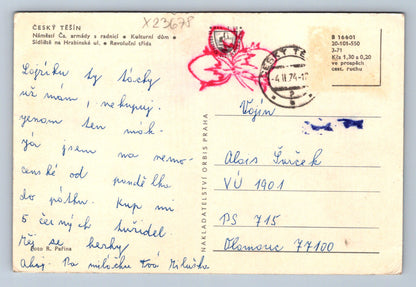 X23678
ČESKÝ TĚŠÍN
Náměstí Čs. armády s radnicí • Kulturní dům •
Sídliště na Hrabinské ul. • Revoluční třída
ČESKÝ TĚŠÍN
-4.II.74-1
B 16601
20-101-550
3-71
Kčs 1,30 ± 0,20
ve prospěch
cest. ruchu
ty tácky
už mám i nekupuj.
jenom ten
já jsem na nemo-
censké od pondělka
do pátku. Kup mi
5 černých tužidel.
Měj se hezky
Ahoj. Pa miláčku Tvá Miluška
Foto R. Pařina
NAKLADATELSTVÍ ORBIS PRAHA
Vojín
Alois
VÚ 1901
PS 715
Olomouc 77100